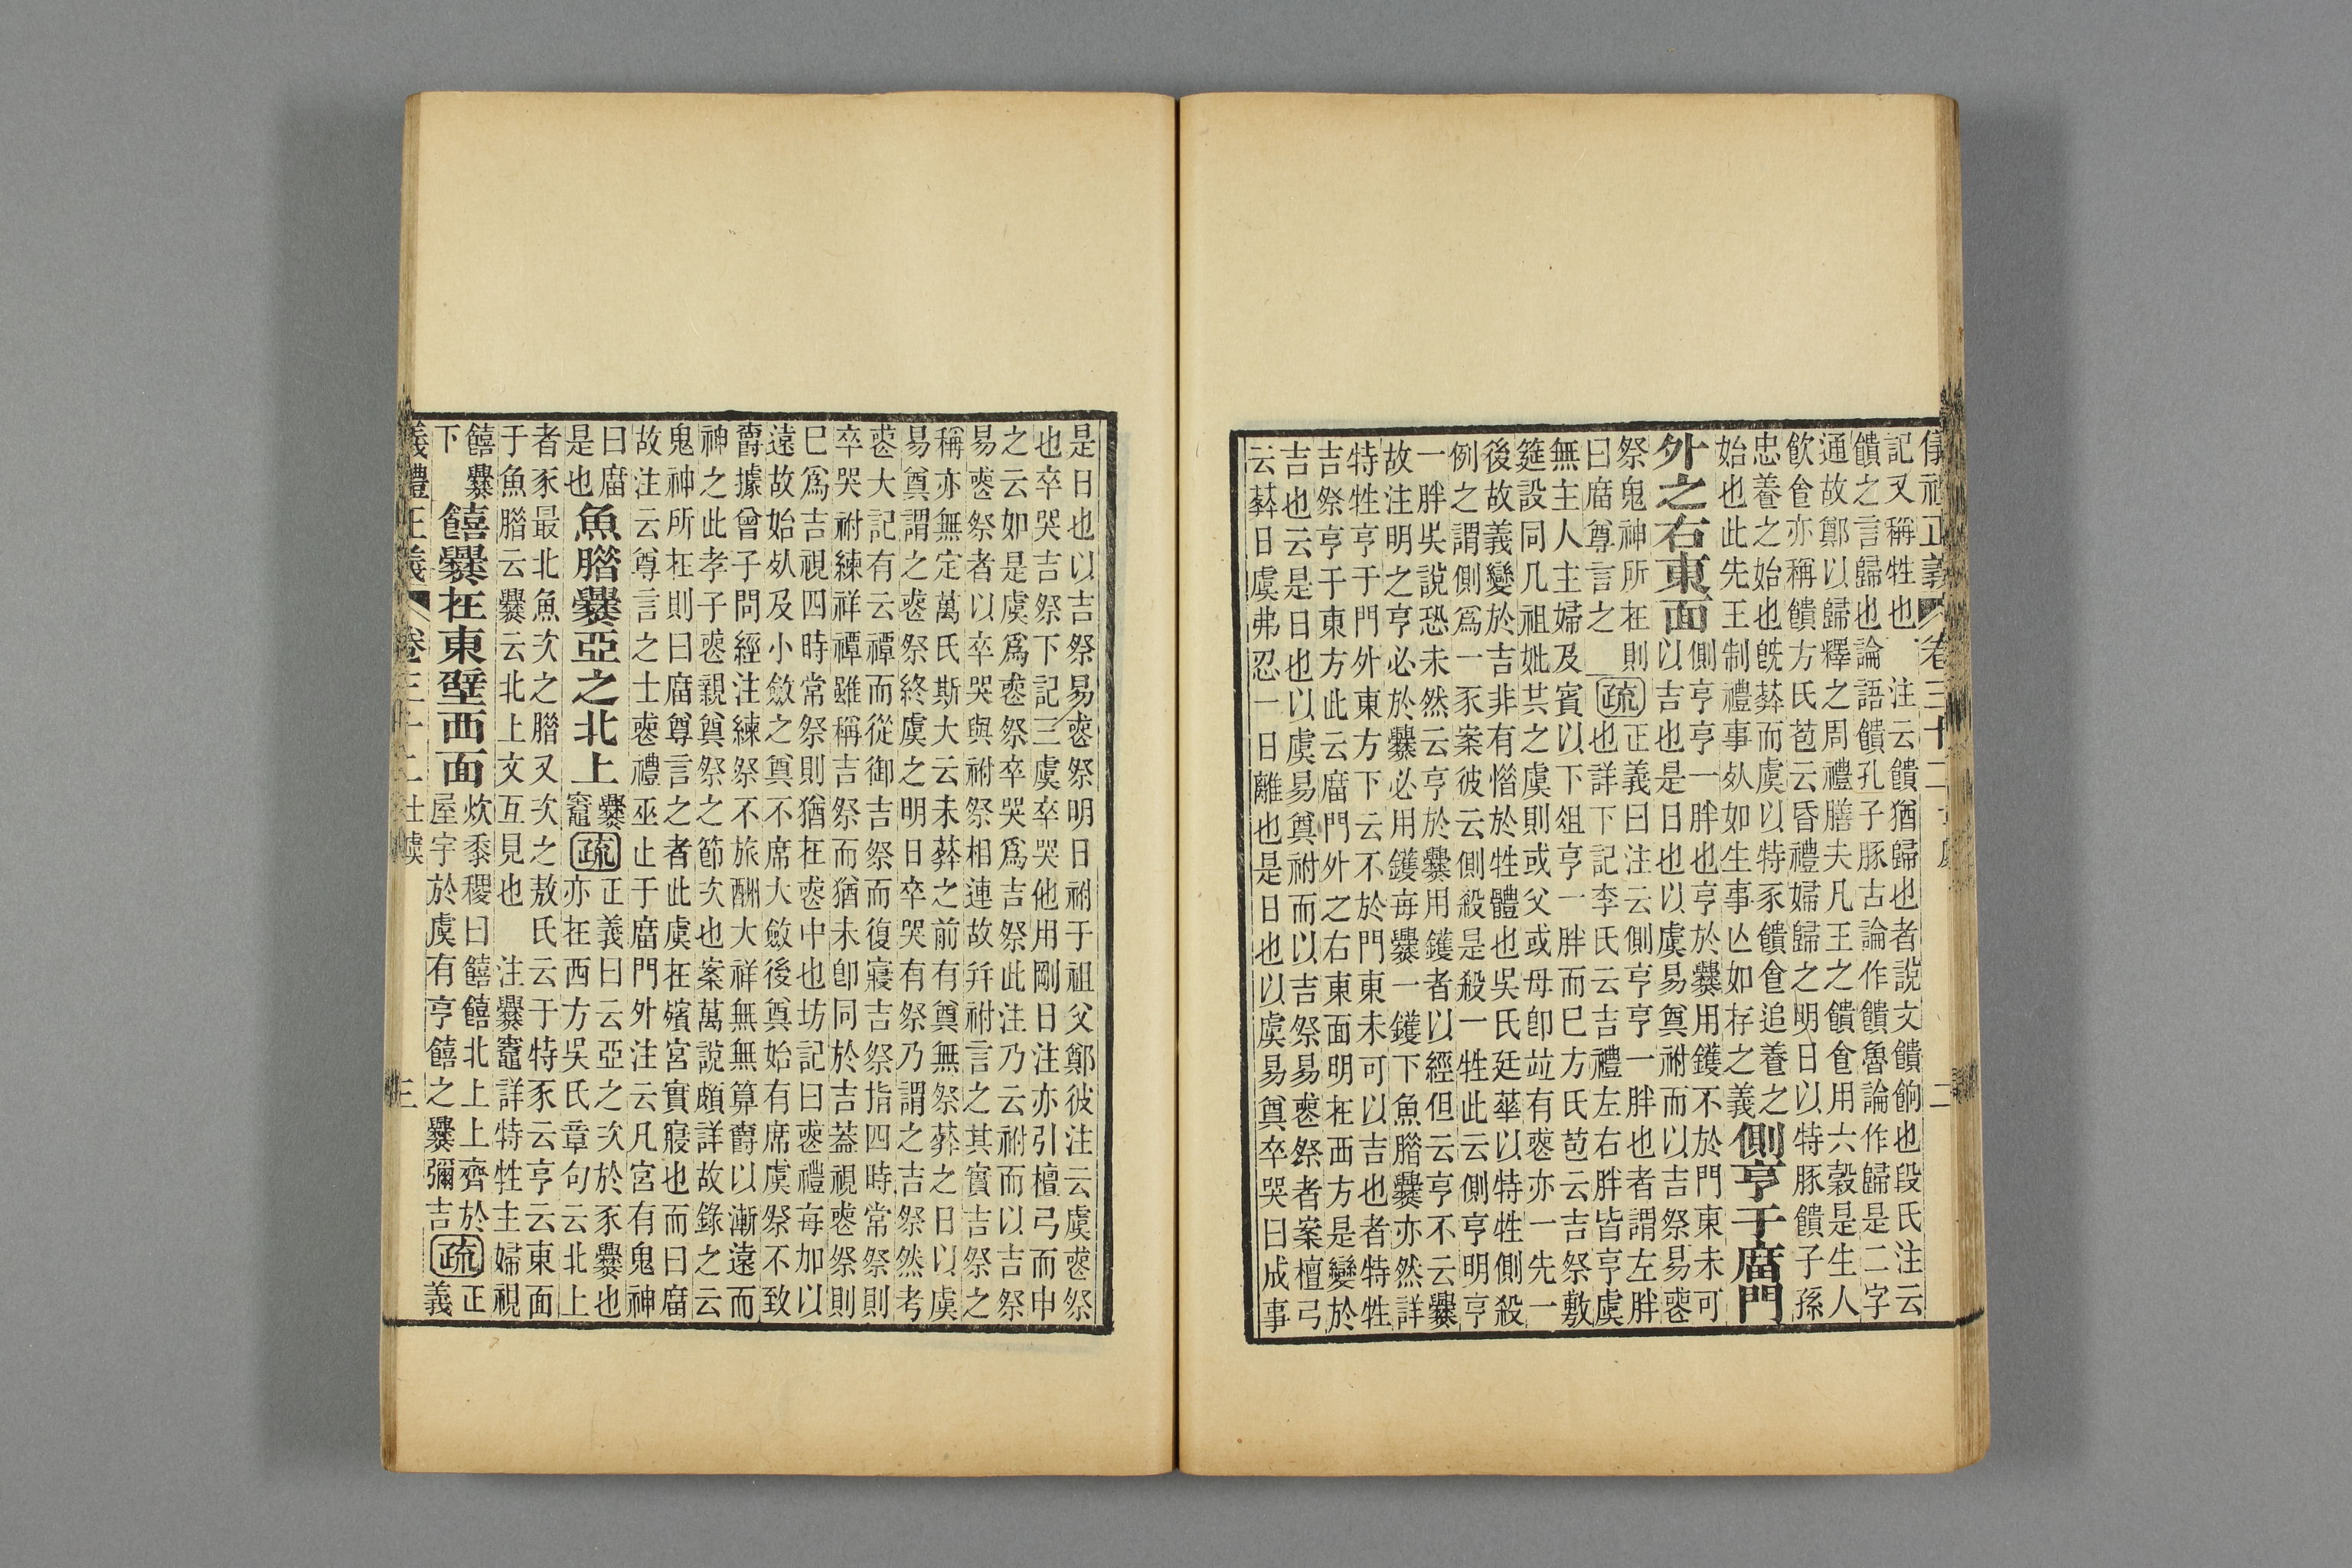 儀禮正義 卷三十二 士虞 二
記又稱牲也 注云饋猶歸也者說文饋餉也段氏注云
饋之言歸也論語饋孔子豚古論作饋魯論作歸是二字
通故鄭以歸釋之周禮膳夫凡王之饋食用六穀是生人
飲食亦稱饋方氏苞云昏禮婦歸之明日以特豚饋子孫
忠養之始也旣葬而虞以特豕饋食追養之
始也此先王制禮事死如生事亡如存之義
側亨于廟門
外之右東面
側亨亨一胖也亨於爨用鑊不於門東未可
以吉也是日也以虞易奠祔而以吉祭易喪
祭鬼神所在則
曰廟尊言之
疏
正義曰注云側亨亨一胖也者謂左胖
也詳下記李氏云吉禮左右胖皆亨虞
無主人主婦及賓以下俎亨一胖而已方氏苞云吉祭敷
筵設同几祖妣共之虞則或父或母卽竝有喪亦一先一
後故義變於吉非有惜於牲體也吳氏廷華以特牲側殺
例之謂側爲一豕案彼云側殺是殺一牲此云側亨明亨
一胖吳說恐未然云亨於爨用鑊者以經但云亨不云爨
故注明之亨必於爨必用鑊每爨一鑊下魚腊爨亦然詳
特牲亨于門外東方下云不於門東未可以吉也者特牲
吉祭亨于東方此云廟門外之右東面明在西方是變於
吉也云是日也以虞易奠祔而以吉祭易喪祭者案檀弓
云葬日虞弗忍一日離也是日也以虞易奠卒哭曰成事
是日也以吉祭易喪祭明日祔于祖父鄭彼注云虞喪祭
也卒哭吉祭下記三虞卒哭他用剛日注亦引檀弓而申
之云如是虞爲喪祭卒哭爲吉祭此注乃云祔而以吉祭
易喪祭者以卒哭與祔祭相連故幷祔言之其實吉祭之
稱亦無定萬氏斯大云未葬之前有奠無祭葬之日以虞
易奠謂之喪祭終虞之明日卒哭有祭乃謂之吉祭然考
喪大記有云禫而從御吉祭而復寢吉祭指四時常祭則
卒哭祔練祥禫雖稱吉祭而猶未卽同於吉蓋視喪祭則
已爲吉視四時常祭則猶在喪中也坊記曰喪禮每加以
遠故始死及小斂之奠不席大斂後奠始有席虞祭不致
爵據曾子問經注練祭不旅酬大祥無無算爵以漸遠而
神之此孝子喪親奠祭之節次也案萬說頗詳故錄之云
鬼神所在則曰廟尊言之者此虞在殯宮實寢也而曰廟
故注云尊言之士喪禮巫止于廟門外注云凡宮有鬼神
曰廟
是也
魚腊爨亞之北上
爨
竈
疏
正義曰云亞之次於豕爨也
亦在西方吳氏章句云北上
者豕最北魚次之腊又次之敖氏云于特豕云亨云東面
于魚腊云爨云北上文互見也 注爨竈詳特牲主婦視
饎爨
下
饎爨在東壁西面
炊黍稷曰饎饎北上上齊於
屋宇於虞有亨饎之爨彌吉
疏
正
義
儀禮正義 卷三十二 士虞 三